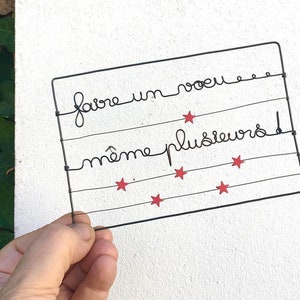 faire un vœu....
même plusieurs!